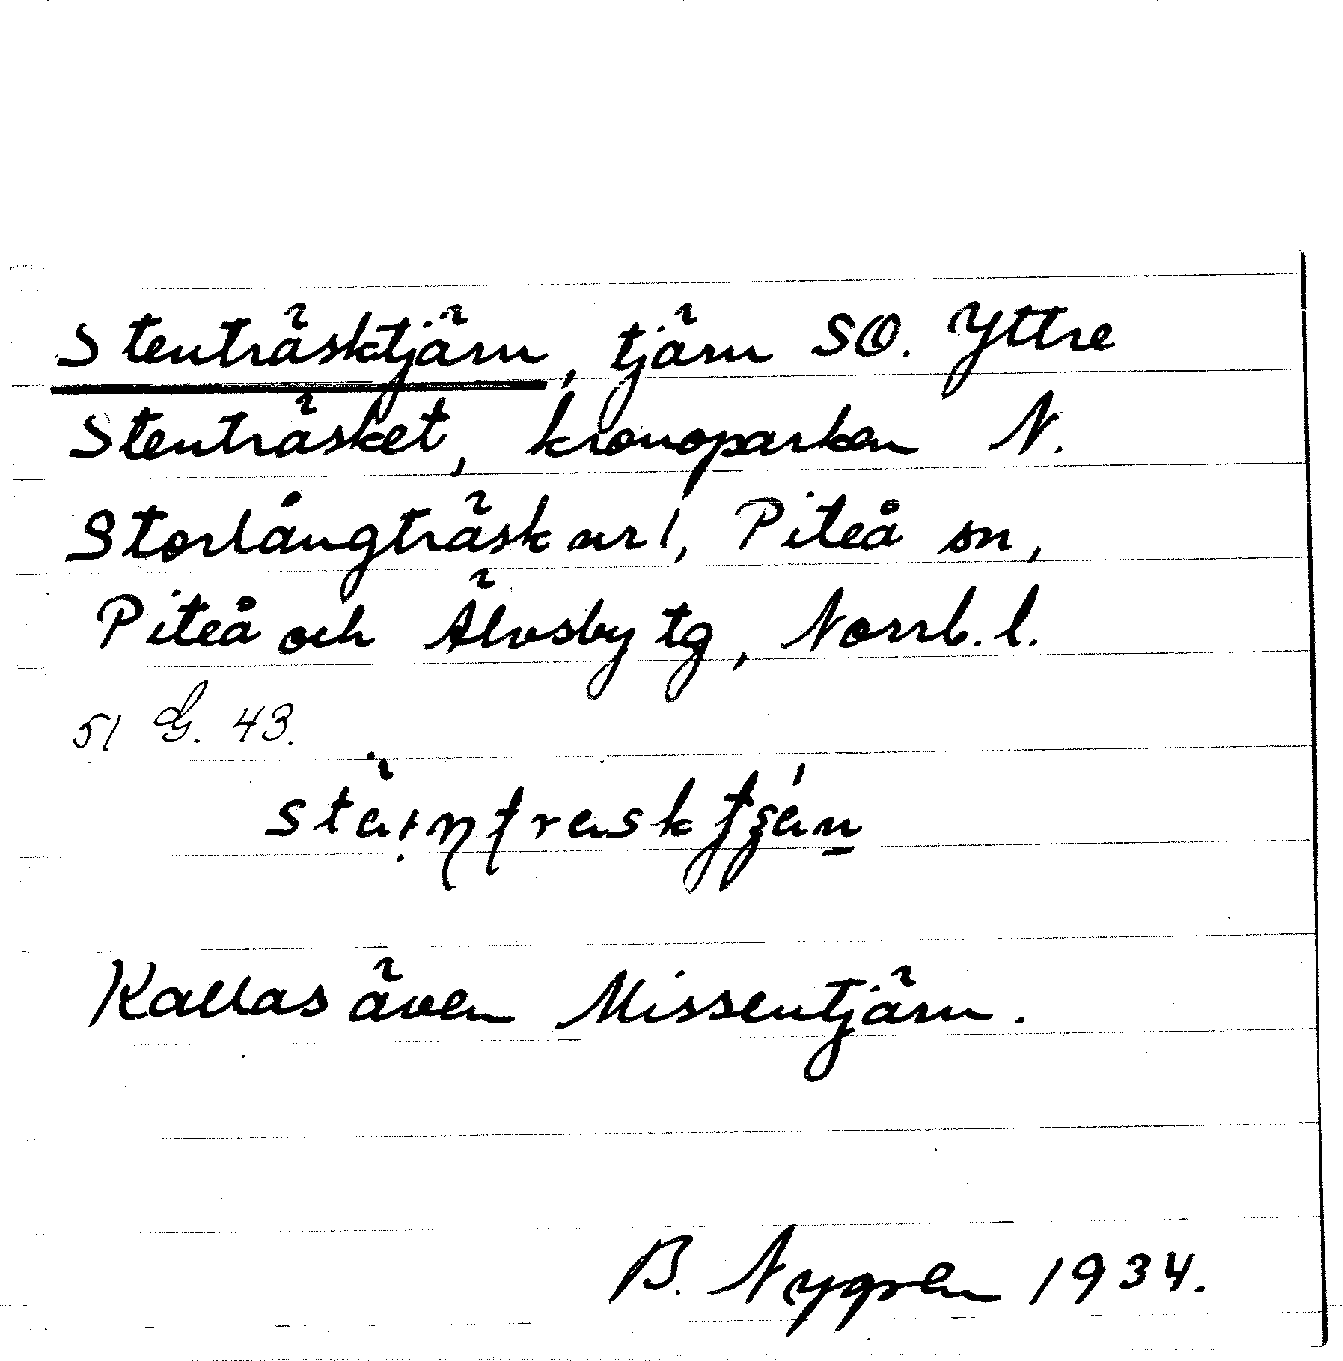 Stenträsktjärn, tjärn SO. Yttre
Stenträsket, kronoparken N.
Storlångträsk nr 1, Piteå sn,
Piteå och Älvsby tg, Norrb. l.
51 G. 43.
Kallas även Missentjärn.
B. Nygren 1934.